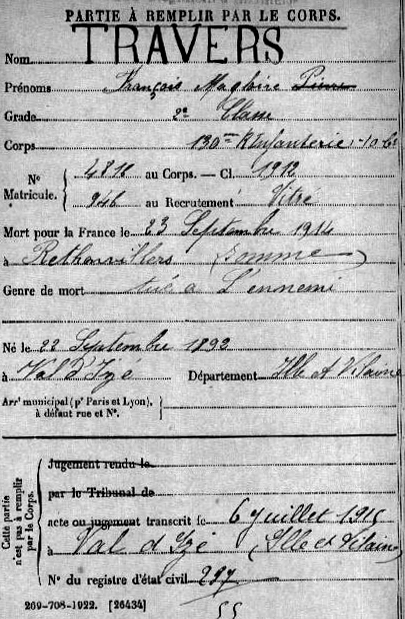 PARTIE À REMPLIR PAR LE CORPS.
Nom TRAVERS
Prénoms François Magloire Pierre
Grade 2e Classe
Corps 130me R Infanterie - 10 Cie
No Matricule. { 4818 au Corps. — Cl. 1912
946 au Recrutement Vitré
Mort pour la France le 23 Septembre 1914
à Rethonvillers (Somme)
Genre de mort tué à L'ennemi
Né le 22 Septembre 1892
à Val D'Izé Département Ille et Vilaine
Arrt municipal (pr Paris et Lyon), à défaut rue et No. {
Cette partie n'est pas à remplir par le Corps. {
Jugement rendu le
par le Tribunal de
acte ou jugement transcrit le 6 Juillet 1915
à Val d Izé (Ille et Vilaine)
No du registre d'état civil 297
269-708-1922. [26434]
55